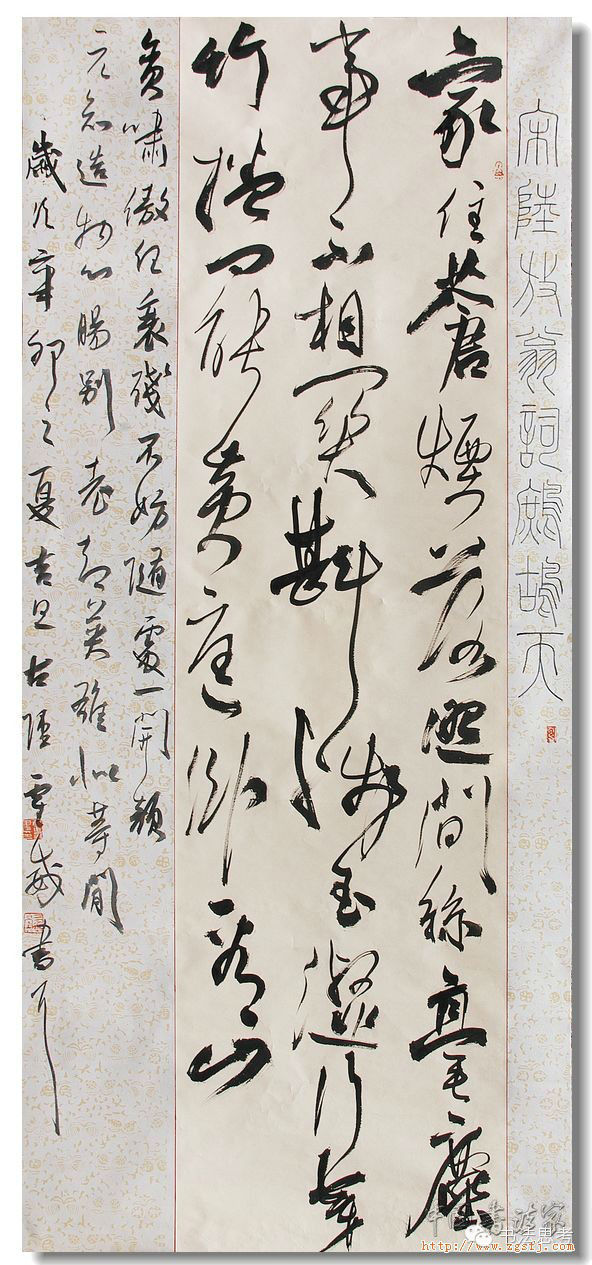 宋陸放翁詞鷓鴣天
家住蒼煙落照間絲毫塵
事不相關斟殘玉瀣行穿
竹捲罷黄庭卧看山
貪嘯傲任衰殘不妨隨處一開顏
元知造物心腸別老却英雄似等閒
歲次辛卯之夏吉旦古陘書
中国书法家
书法思考
http://www.zgsfj.com